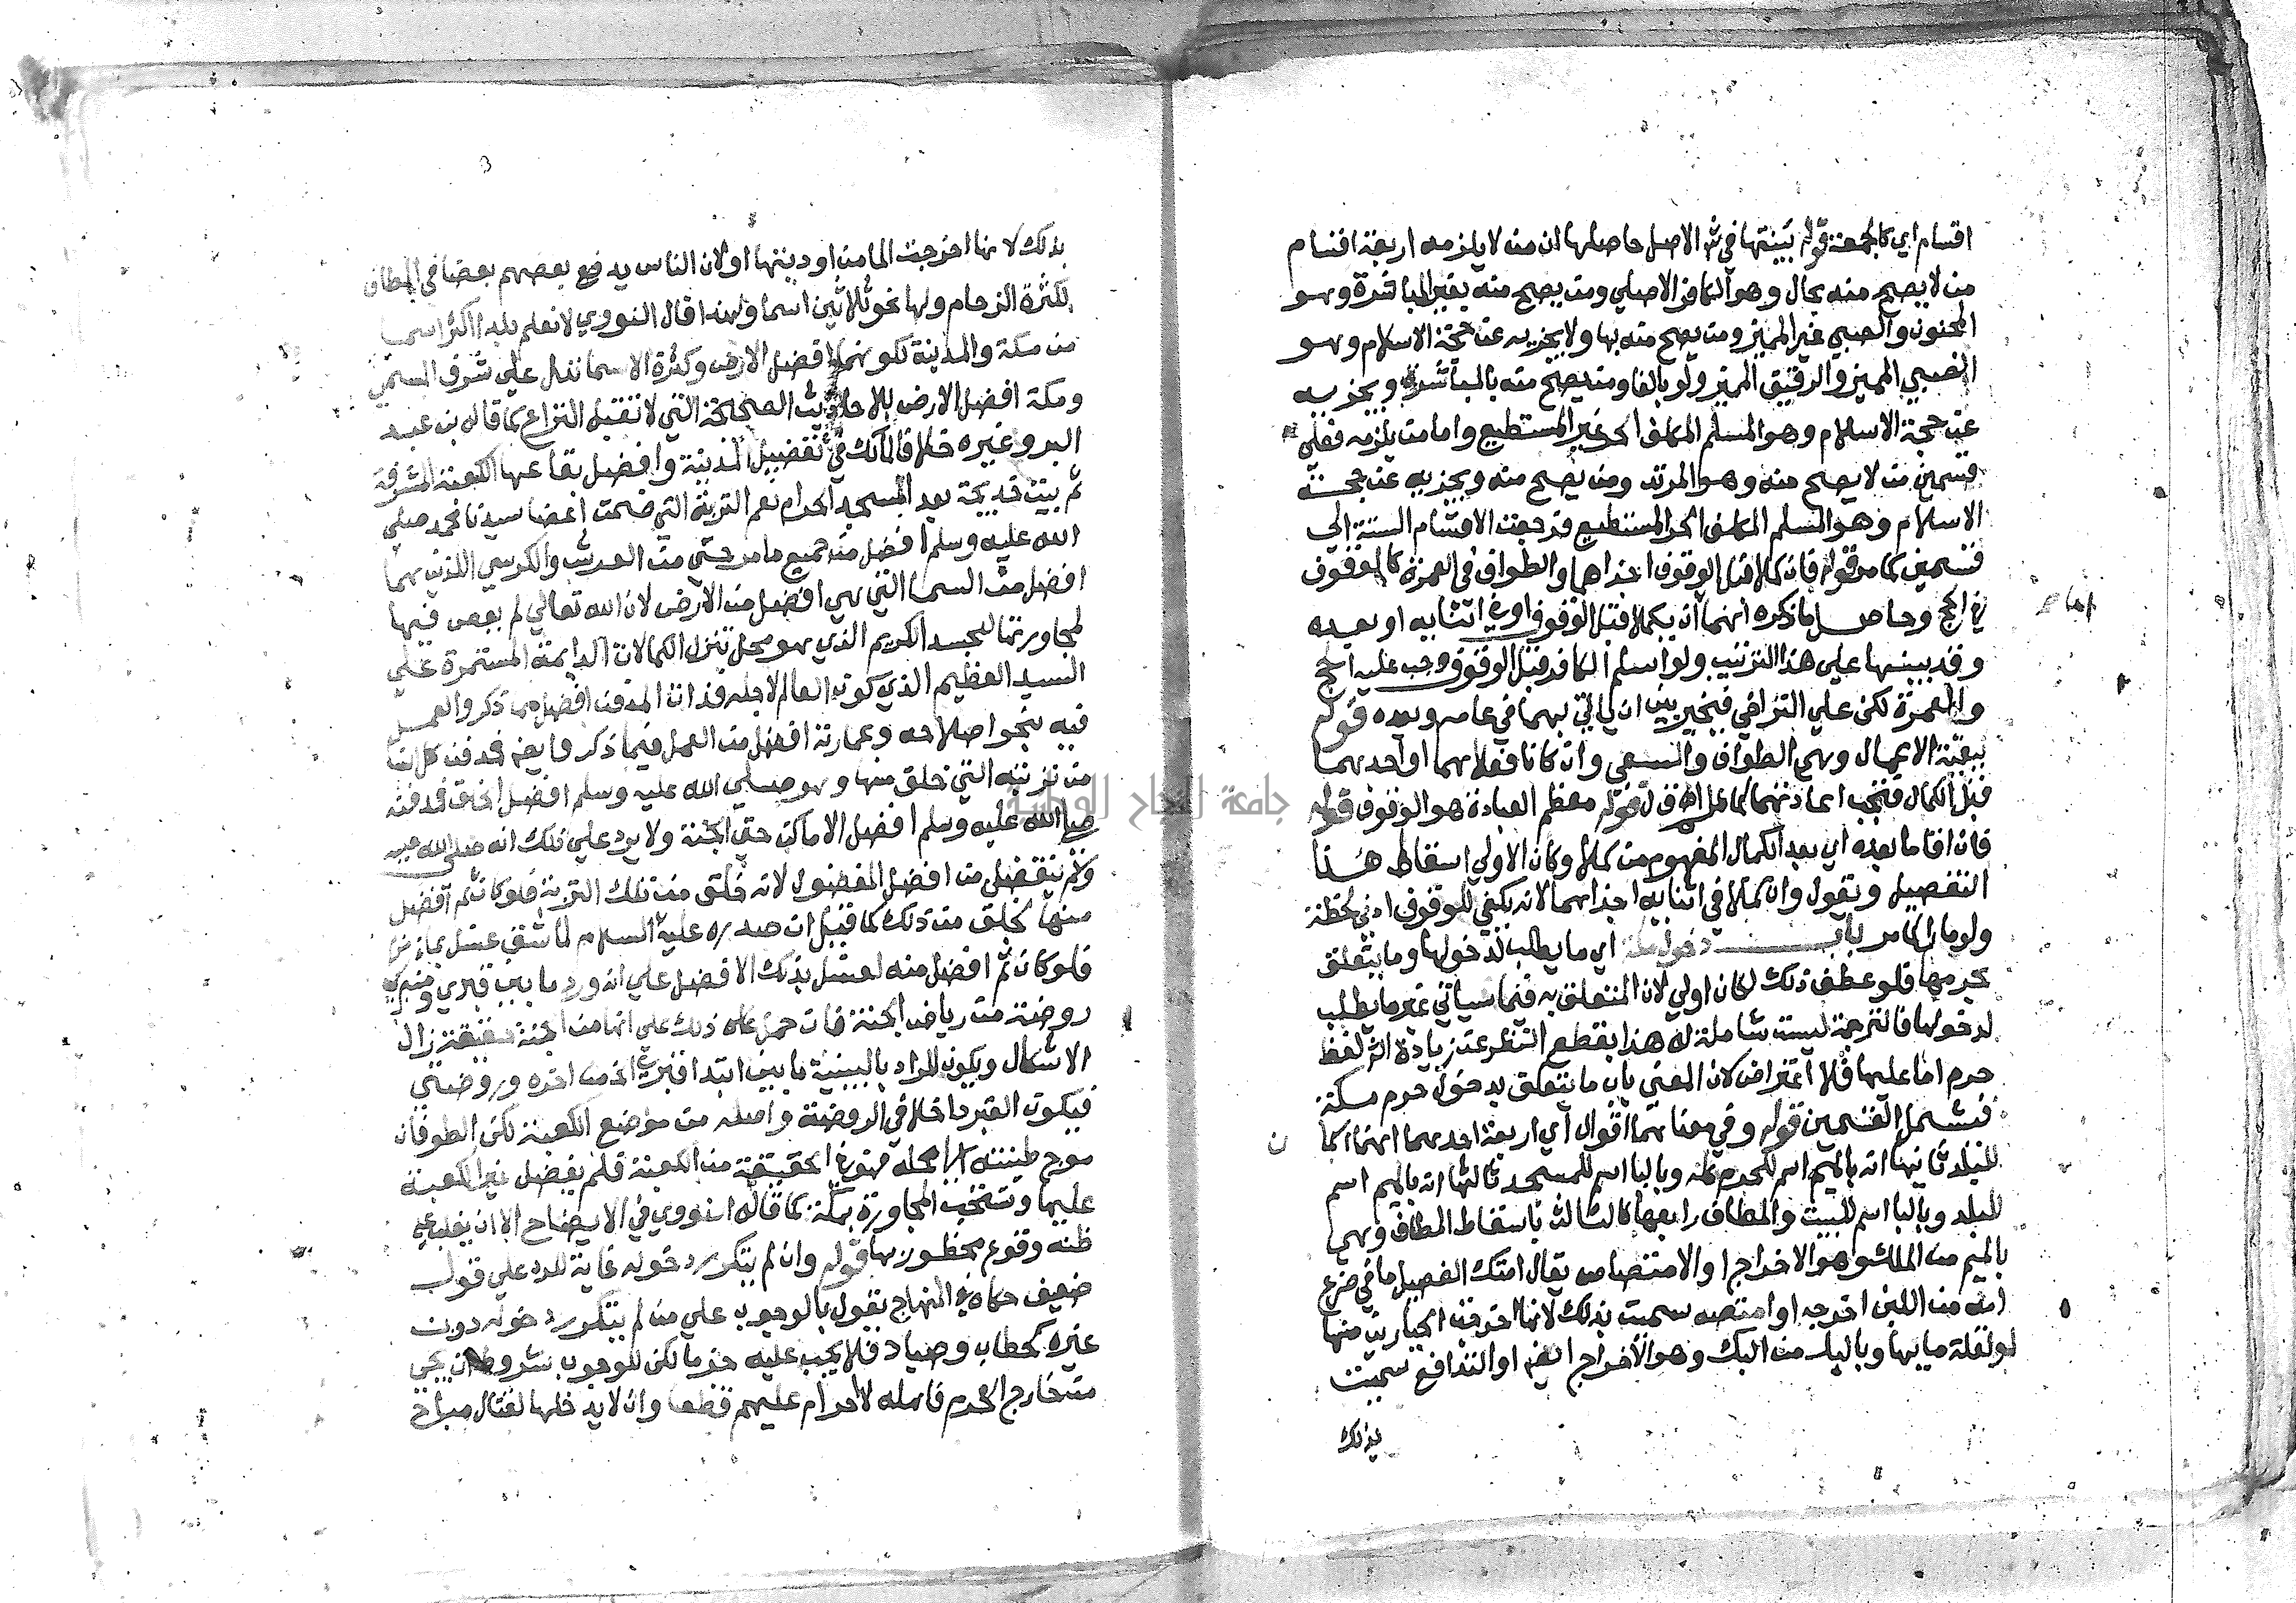 اقسام اي كالجمعة قوله بينتها في ش الاصل حاصلها ان من لا يلزمه اربعة اقسام
من لا يصح منه بحال وهو الكافر الاصلي ومن يصح منه بغير المباشرة وهو
المجنون والصبي غير المميز ومن يصح منه بها ولا يجزيه عن حجة الاسلام وهو
الصبي المميز والرقيق المميز ولو بالغا ومن يصح منه بالمباشرة ويجزيه
عن حجة الاسلام وهو المسلم المكلف الحر غير المستطيع واما من يلزمه فعلي
قسمين من لا يصح منه وهو المرتد ومن يصح منه ويجزيه عن حجة
الاسلام وهو المسلم المكلف الحر المستطيع فرجعت الاقسام الستة الي
قسمين كما مر قوله فان كملا قبل الوقوف اجزاهما والطواف في العمرة كالوقوف
في الحج وحاصل ما ذكره انهما ان يكملا قبل الوقوف او في اثنايه او بعده
وقد بينها علي هذا الترتيب ولو اسلم الكافر قبل الوقوف وجب عليه الحج
والعمرة لكن علي التراخي فيخير بين ان ياتي بهما في عامه وبعده قوله
ببقية الاعمال وهي الطواف والسعي وان كانا فعلاهما او احدهما
قبل الكمال فتجب اعادتهما كما علم قوله معظم العبادة هو الوقوف قوله
فان افاقا بعده اي بعد الكمال المفهوم من كملا وكان الاولي اسقاط هذا
التفصيل ويقول وان كملا في اثنايه اجزاهما لانه يكفي للوقوف ادني لحظة
ولو مارا كما مر باب دخول مكة اي ما يطلب لدخولها وما يتعلق
بحرمها فلو عطف ذلك لكان اولي لان المتعلق به فيما سياتي غير ما يطلب
لدخولها فالترجمة ليست شاملة له هذا بقطع النظر عن زيادة الش لفظ
حرم اما عليها فلا اعتراض لان المعني باب ما يتعلق بدخول حرم مكة
فتشمل القسمين قوله وفي معناهما اقوال اي اربعة احدهما انهما اسما
للبلد ثانيها انه بالميم اسم للحرم كله وبالبا اسم للمسجد ثالثها انه بالميم اسم
للبلد وبالبا اسم للبيت والمطاف رابعها كالثالث باسقاط المطاف وهي
بالميم من المك وهو الاخراج او الامتصاص يقال امتك الفصيل ما في ضرع
امه من اللبن اخرجه او امتصه سميت بذلك لانها اخرجت الجبارين منها
او لقلة مايها وبالبا من البك وهو الاخراج ايضا او التدافع سميت
بذلك
بذلك لانها اخرجت الما من اوديتها او لان الناس يدفع بعضهم بعضا في المطاف
لكثرة الزحام ولها نحو ثلاثين اسما ولهذا قال النووي لا نعلم بلدا اكثر اسما
من مكة والمدينة لكونهما افضل الارض وكثرة الاسما تدل علي شرف المسمي
ومكة افضل الارض للاحاديث الصحيحة التي لا تقبل النزاع كما قاله بن عبد
البر وغيره خلافا لمالك في تفضيل المدينة وافضل بقاعها الكعبة المشرفة
ثم بيت خديجة بعد المسجد الحرام نعم التربة التي ضمت اعضا سيدنا محمد صلي
الله عليه وسلم افضل من جميع ما مر حتي من العرش والكرسي اللذين هما
افضل من السما التي هي افضل من الارض لان الله تعالي لم يعص فيها
لمجاورتها للجسد الكريم الذي هو محل تنزل الكمالات الدايمة المستمرة علي
السيد العظيم الذي كون العالم لاجله فذات المدفن افضل مما ذكر والعمل
فيه بنحو اصلاحه وعمارته افضل من العمل فيما ذكر وايضا فمدفن كل انسان
من تربته التي خلق منها وهو صلي الله عليه وسلم افضل الخلق فمدفنه
صلي الله عليه وسلم افضل الاماكن حتي الجنة ولا يرد علي ذلك انه صلي الله عليه
وسلم
منها لخلق من ذلك كما قيل ان صدره عليه السلام لما شق غسل بماء زمزم
فلو كان ثم افضل منه لغسل بذلك الافضل علي انه ورد ما بين قبري ومنبري
روضة من رياض الجنة فان حمل ذلك علي انها من الجنة حقيقة زال
الاشكال ويكون المراد بالبينية ما بين ابتدا قبري الخ من اخره وروضتي
فيكون القبر داخلا في الروضة واصله من موضع الكعبة لكن الطوفان
موج طينته الي محله فهو في الحقيقة من الكعبة فلم يفضل غير الكعبة
عليها وتستحب المجاورة بمكة كما قاله النووي في الايضاح الا ان يغلب علي
ظنه وقوع محظور بها قوله وان لم يتكرر دخوله غاية للرد علي قول
ضعيف حكاه في المنهاج بقول بالوجوب علي من لم يتكرر دخوله دون
غيره كحطاب وصياد فلا يجب عليه جزما لكن للوجوب شروط ان يجي
من خارج الحرم فاهله لا احرام عليهم قطعا وان لا يدخلها لقتال مباح